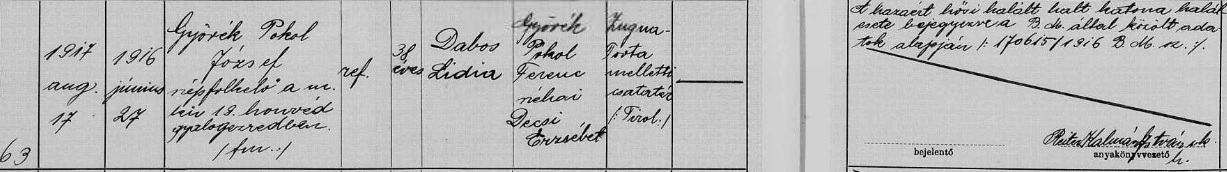 63
1917
aug.
17
1916
június
27
Györék Pokol
József
népfelkelő a m.
kir. 19. honvéd
gyalogezredben.
ref.
38
éves
Dabos
Lidia
Györék
Pokol
Ferenc
néhai
Décsi
Erzsébet
Zugna-
Torta
melletti
csatatér
/: Tirol :/
A hazáért hősi halált halt katona halál
esete bejegyezve a B. M. által közölt ada
tok alapján /: 170615/1916 B. M. sz. :/
bejelentő
Kalmár István
anyakönyvvezető
h.